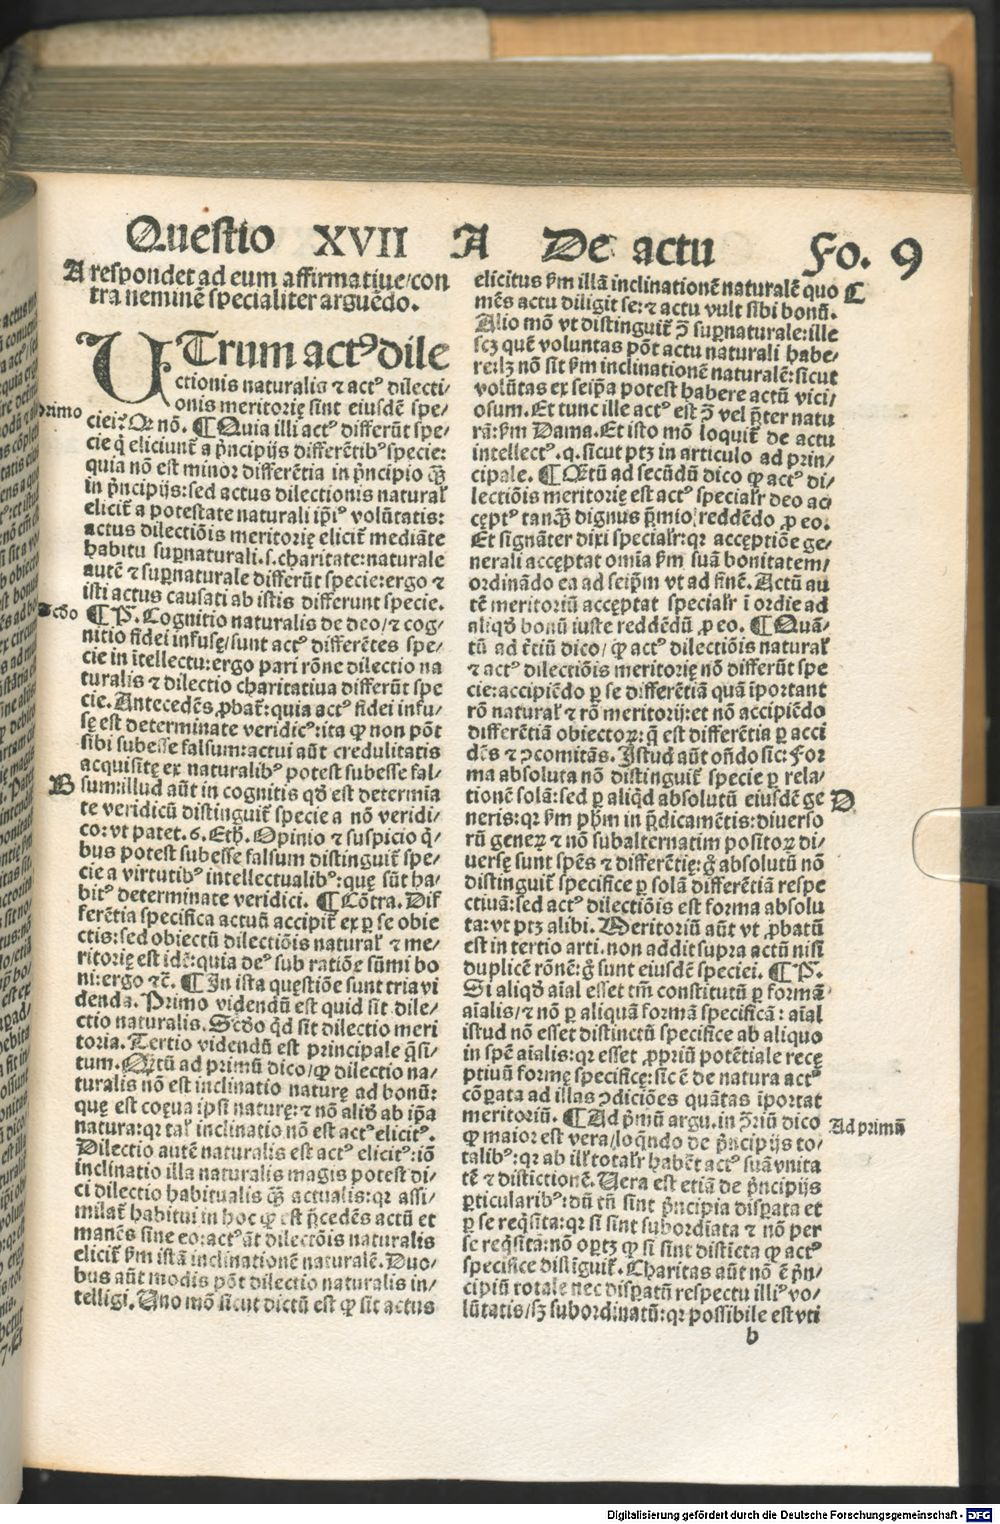 Questio XVII A De actu Fo. 9
A respondet ad eum affirmatiue/con
tra neminē specialiter arguēdo.
UTrum actꝰ dile
ctionis naturalis ⁊ actꝰ dilecti/
onis meritorię sint eiusdē spe/
primo
ciei? Qr nō. ¶ Quia illi actꝰ differūt spe/
cie q̄ eliciunt̄ a pͥncipijs differētibꝰ specie:
quia nō est minor differētia in pͥncipio qȝ̄
in pͥncipijs: sed actus dilectionis natural̄
elicit̄ a potestate naturali ip̄iꝰ volūtatis:
actus dilectiōis meritorię elicit̄ mediāte
habitu supͬnaturali.s.charitate: naturale
autē ⁊ supͬnaturale differūt specie: ergo ⁊
isti actus causati ab istis differunt specie.
Scd̄o
¶ P̄. Cognitio naturalis de deo/⁊ cog/
nitio fidei infusę/sunt actꝰ differētes spe/
cie in ītellectu: ergo pari rōne dilectio na
turalis ⁊ dilectio charitatiua differūt spe
cie. Antecedēs ꝓbat̄: quia actꝰ fidei infu/
sę est determinate veridicꝰ: ita ꝙ non pōt
sibi subesse falsum: actui aūt credulitatis
acquisitę ex naturalibꝰ potest subesse fal/
B
sum: illud aūt in cognitis qd̄ est determia
te veridicū distinguit̄ specie a nō veridi/
co: vt patet.6.Eth̄. Opinio ⁊ suspicio qͥ/
bus potest subesse falsum distinguit̄ spe/
cie a virtutibꝰ intellectualibꝰ: quę sūt ha/
bitꝰ determinate veridici. ¶ Cōtra. Dif
ferētia specifica actuū accipit̄ ex ꝑ se obie
ctis: sed obiectū dilectiōis natural̄ ⁊ me/
ritorię est idē: quia deꝰ sub ratiōe sūmi bo
ni: ergo ⁊c̄. ¶ In ista questiōe sunt tria vi
denda. Primo videndū est quid sit dile/
ctio naturalis. Scd̄o qͥd sit dilectio meri
toria. Tertio videndū est principale q̄si/
tum. Qꝫtū ad primū dico/ꝙ dilectio na/
turalis nō est inclinatio naturę ad bonū:
quę est coęua ipsi naturę: ⁊ nō aliqͥd ab ip̄a
natura: qr tal̄ inclinatio nō est actꝰ elicitꝰ.
Dilectio autē naturalis est actꝰ elicitꝰ: iō
inclinatio illa naturalis magis potest di/
ci dilectio habitualis qȝ̄ actualis: qr assi/
milat̄ habitui in hoc ꝙ est p̄cedēs actū et
manēs sine eo: actꝰ āt dilectōis naturalis
elicit̄ ẜm istā inclinationē naturalē. Duo/
bus aūt modis pōt dilectio naturalis in/
telligi. Uno mō sicut dictū est ꝙ sit actus
elicitus ẜm illā inclinationē naturalē quo
C
mēs actu diligit se: ⁊ actu vult sibi bonū.
Alio mō vt distinguit̄ ꝯ̄ supͬnaturale: ille
scȝ quē voluntas pōt actu naturali habe/
re: ilȝ nō sit ẜm inclinationē naturalē: sicut
volūtas ex seip̄a potest habere actū vici/
osum. Et tunc ille actꝰ est ꝯ̄ vel p̄ter natu
rā: ẜm Dama. Et isto mō loquit̄ de actu
intellectꝰ.q. sicut ptȝ in articulo ad prin/
cipale. ¶ Qꝫtū ad secūdū dico ꝙ actꝰ di/
lectiōis meritorię est actꝰ specialr̄ deo ac
cęptꝰ tanqȝ̄ dignus p̄mio/reddēdo ꝓ eo.
Et signāter dixi specialr̄: qr acceptiōe ge/
nerali acceptat omīa ẜm suā bonitatem/
ordināndo ea ad seip̄m vt ad finē. Actū au
tē meritoriū acceptat specialr̄ ī ordīe ad
aliqd̄ bonū iuste reddēdū ꝓ eo. ¶ Quā/
tū ad t̄tiū dico/ꝙ actꝰ dilectiōis natural̄
⁊ actꝰ dilectiōis meritorię nō differūt spe
cie: accipiēdo ꝑ se differētiā quā īportant
rō natural̄ ⁊ rō meritorij: et nō accipiēdo
differētiā obiectoꝝ: q̄ est differētia ꝑ acci
dēs ⁊ ꝯcomitās. Istud aūt ōn̄do sic: For
ma absoluta nō distinguit̄ specie ꝑ rela/
tionē solā: sed ꝑ aliqͥd absolutū eiusdē ge
D
neris: qr ẜm ph̄m in p̄dicamētis: diuerso
rū generꝝ ⁊ nō subalternatim positoꝝ di/
uersę sunt spēs ⁊ differētię: gͦ absolutū nō
distinguit̄ specifice ꝑ solā differētiā respe
ctiuā: sed actꝰ dilectiōis est forma absolu
ta: vt ptȝ alibi. Meritoriū aūt vt ꝓbatū
est in tertio arti. non addit supra actū nisi
duplicē rōnē: gͦ sunt eiusdē speciei. ¶ P̄.
Si aliqd̄ aīal esset tm̄ constitutū ꝑ formā
aīalis/⁊ nō ꝑ aliquā formā specificā: aīal
istud nō esset distinctū specifice ab aliquo
in spē aīalis: qr esset ꝓpriū potētiale recę
ptiuū formę specificę: sic ē de natura actꝰ
cōꝑata ad illas ꝯdiciōes quātas īportat
meritoriū. ¶ Ad pͥmū argu. in ꝯ̄riū dico
Ad primū
ꝙ maior est vera/loqͣndo de pͥncipijs to/
talibꝰ: qr ab ill̄ totalr̄ habēt actꝰ suā vnita
tē ⁊ distictionē. Uera est etiā de pͥncipijs
ꝑticularibꝰ: dū tn̄ sint pͥncipia disꝑata et
ꝑ se reqͥsita: qr si sint subordīata ⁊ nō per
se reqͥsita: nō oꝑtȝ ꝙ si sint distīcta ꝙ actꝰ
specifice distīguit̄. Charitas aūt nō ē pͥn/
cipiū totale nec disꝑatū respectu illiꝰ vo/
lūtatis/sȝ subordinatū: qr possibile est vti
b
Digitalisierung gefördert durch die Deutsche Forschungsgemeinschaft - DFG